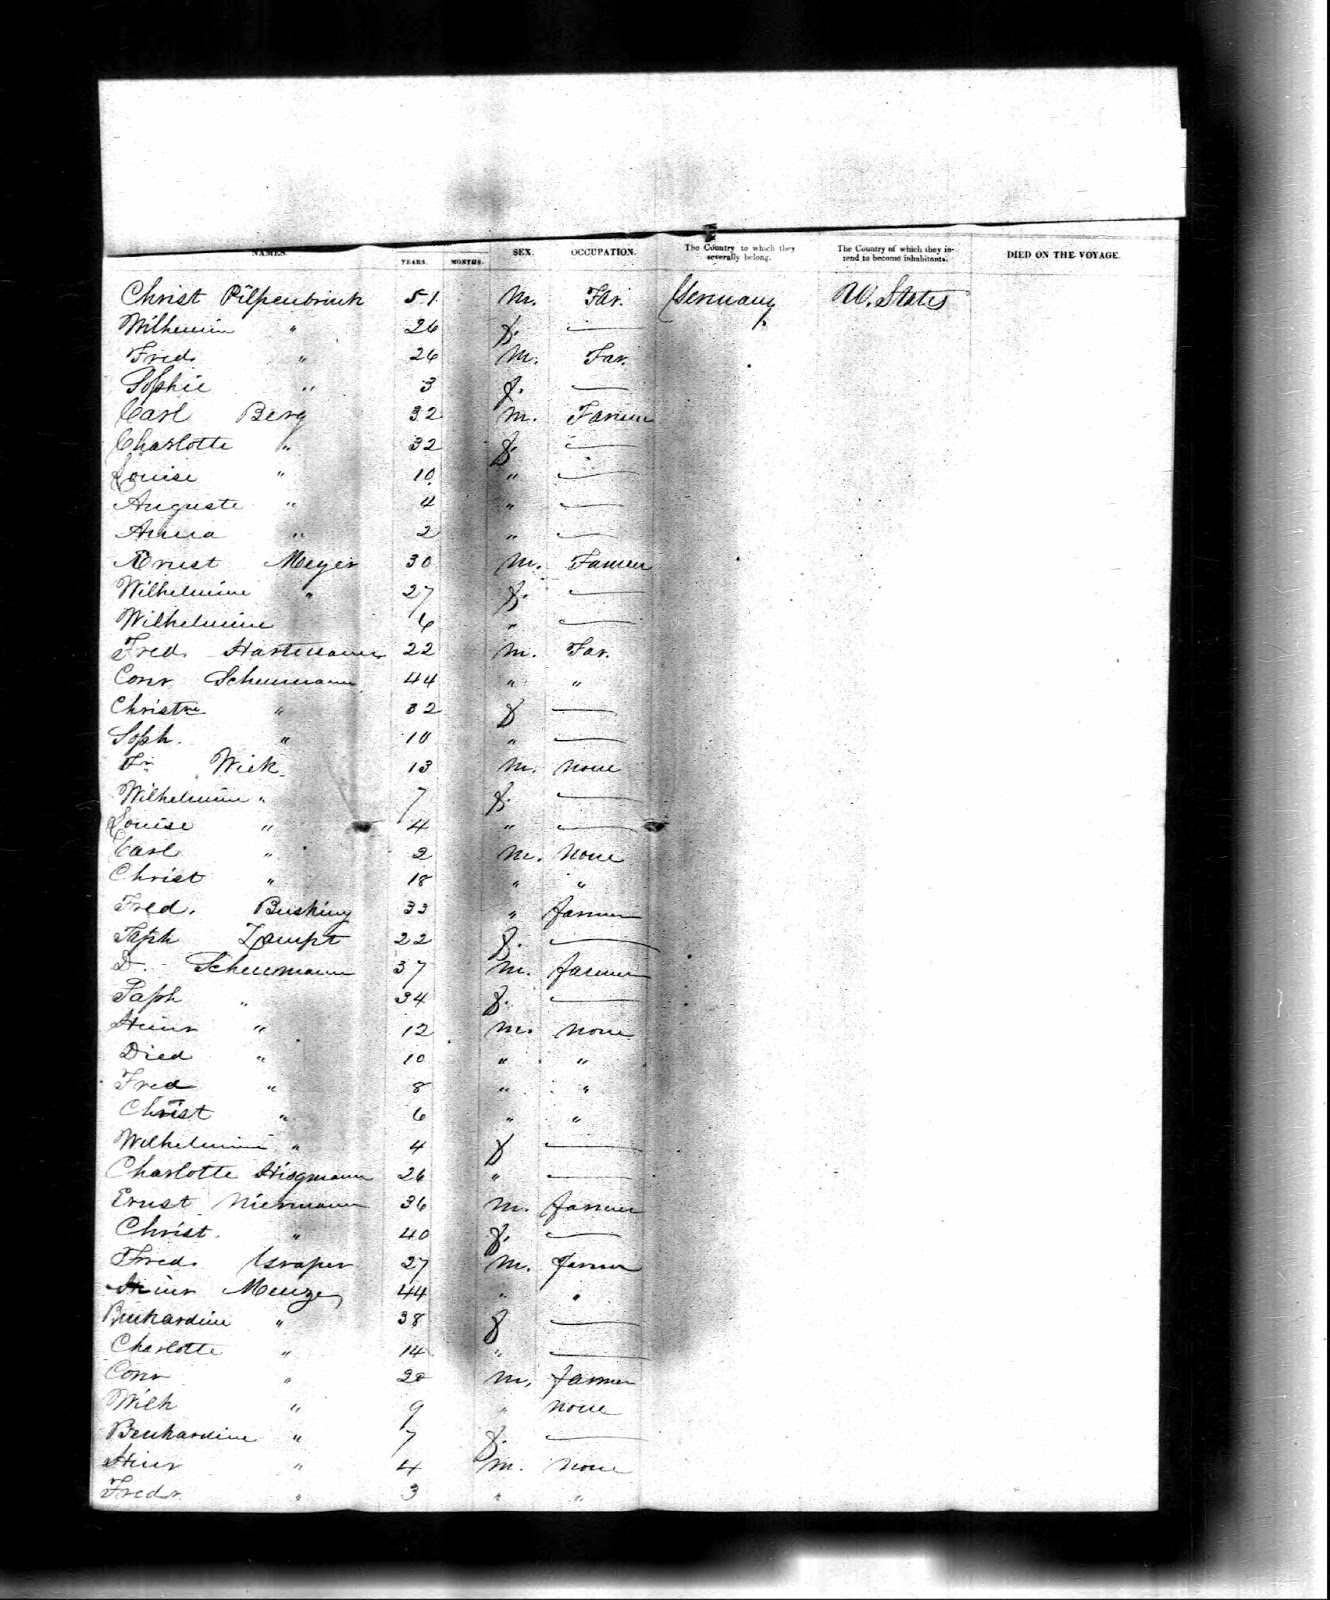 NAMES. YEARS. MONTHS. SEX. OCCUPATION. The Country to which they severally belong. The Country of which they intend to become inhabitants. DIED ON THE VOYAGE.
Christ Pilpenbrink 51 m. Far. Germany U. States
Wilhemin " 26 f. —
Fred. " 26 m. Far.
Sophie " 3 f. —
Carl Berg 32 m. Farmer
Charlotte " 32 f. —
Louise " 10 " —
Auguste " 4 " —
Anna " 2 " —
Ernst Meyer 30 m. Farmer
Wilhelmine " 27 f. —
Wilhelmine 6 " —
Fred. Hartmann 22 m. Far.
Conr Scheumann 44 " "
Christne " 32 f —
Soph. " 10 " —
Fr Wick 13 m. none
Wilhelmine " 7 f. —
Louise " 4 " —
Carl " 2 m. none
Christ " 18 " "
Fred. Busking 33 " farmer
Soph 22 f. —
D. Scheumann 37 m. farmer
Soph " 34 f. —
Heinr " 12 m. none
Died " 10 " "
Fred " 8 " "
Christ " 6 " "
Wilhelmine " 4 f —
Charlotte 26 " —
Ernst Niermann 36 m. farmer
Christ. " 40 f. —
Fred. Graper 27 m. farmer
Heinr Menze 44 " "
Benhardine " 38 f —
Charlotte " 14 " —
Conr " 20 m. farmer
Wilh " 9 " none
Benhardine " 7 f. —
Heinr " 4 m. none
Fredr " 3 " "